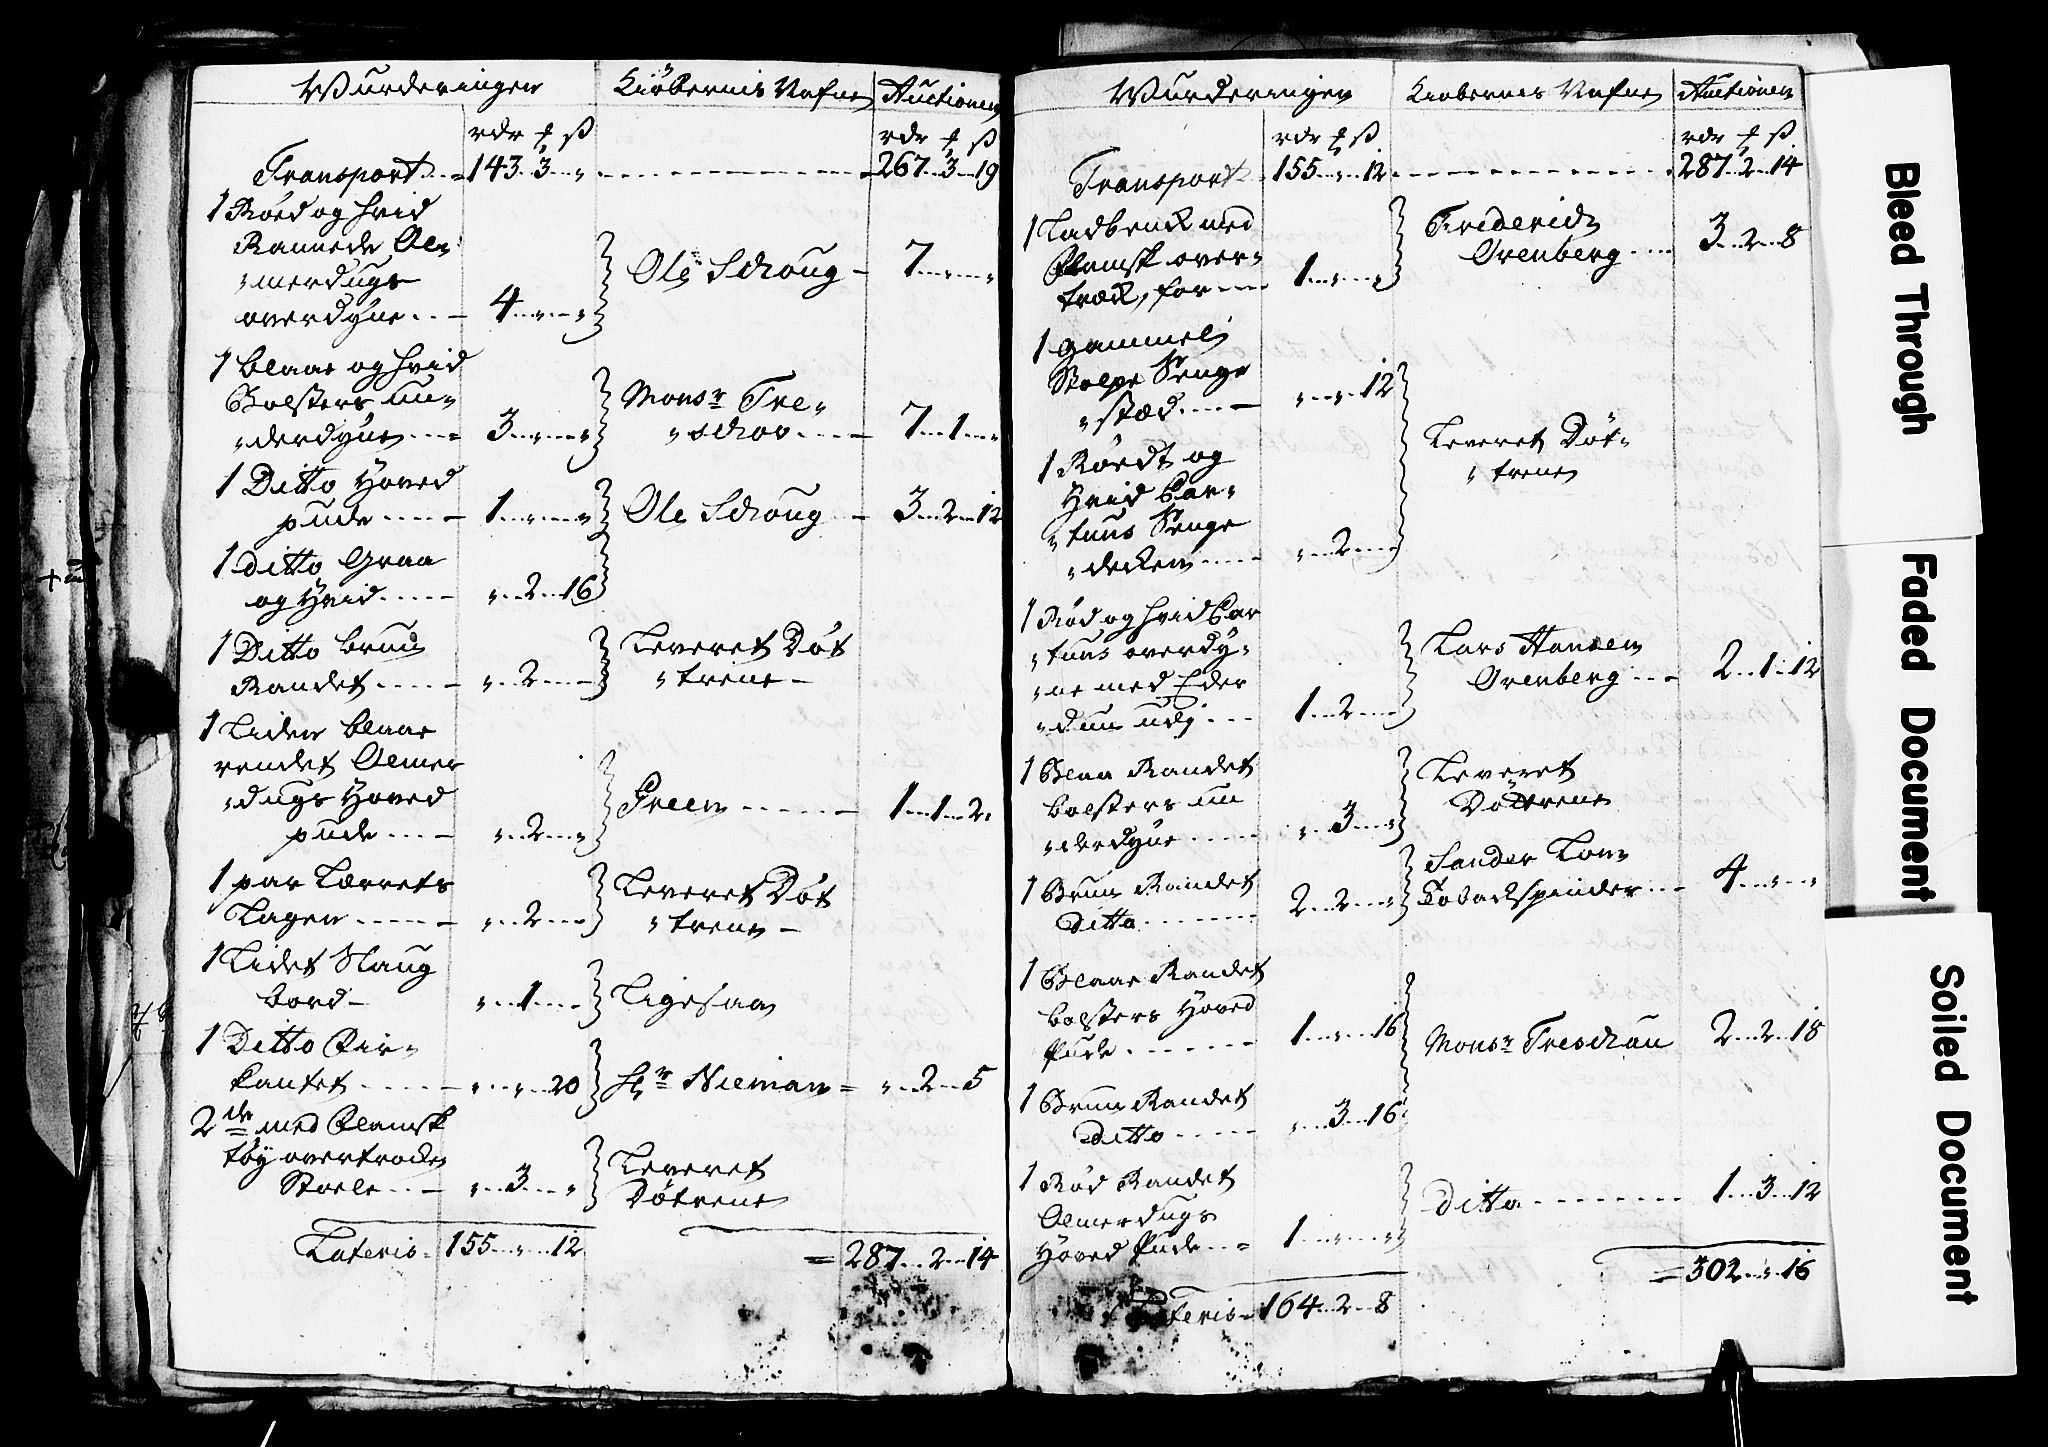 Wurderingen Kiøbernis Nafne Auctionen
rdr ₰ ß rdr ₰ ß
Transport 143 3 „ 267 3 19
1 Røed og hvid
Rannede Ol„
„merdugs
overdyne 4 „ „ Ole Schoug 7 „ „
1 blaae og hvid
Bolsters un„
„derdyne 3 „ „ Monsr Tre„
„schov 7 1 „
1 Ditto Hoved
pude 1 „ „ Ole Schoug 3 2 12
1 ditto Graa
og Hvid „ 2 16
1 Ditto bruun
Randet „ 2 „ Leveret Døt
„trene
1 Liden blaae
rendet Olmer
„dugs Hoved
pude „ 2 „ Green 1 1 2
1 par Lærrets
Lagen „ 2 „ Leveret Døt
„trene
1 Lidet Slaug
bord „ 1 „ Ligesaa
1 Ditto Fir„
kantet „ „ 20 Hr Nieman „ 2 5
2 do med Flamsk
tøy overtrocken
Stoele „ 3 „ Leveret
Døtrene
Lateris 155 „ 12 = 287 2 14
Wurderingen Kiøbernes Nafne Auctionen
rdr ₰ ß rdr ₰ ß
Transport 155 „ 12 287 2 14
1 Ladbenck med
Flamsk over„
træck, for 1 „ „ Friderich
Orenberg 3 2 8
1 gammel
Stolpe Senge
„stæd „ „ 12
1 Røedt og
Hvid Car„
„tuns Senge
„decken „ 2 „ Leveret Døt„
„trene
1 Rød og hvid Car
„tuns overdy„
„ne med Eder
„dun udj 1 2 „ Lars Hansen
Orenberg 2 1 12
1 Blaa Randet
bolsters un
„derdyne „ 3 „ Leveret
Døttrene
1 Bruun Randet
Ditto 2 2 „ Sander Lom
Tobachspinder 4 „ „
1 Blaae Randet
bolsters Hoved
Pude 1 „ 16 Monsr Treschau 2 2 18
1 Bruun Randet
Ditto „ 3 16
1 Rød Randet
Olmerdugs
Hoved Pude 1 „ „ Ditto 1 3 12
Lateris 164 2 8 = 302 „ 16
Bleed Through
Faded Document
Soiled Document